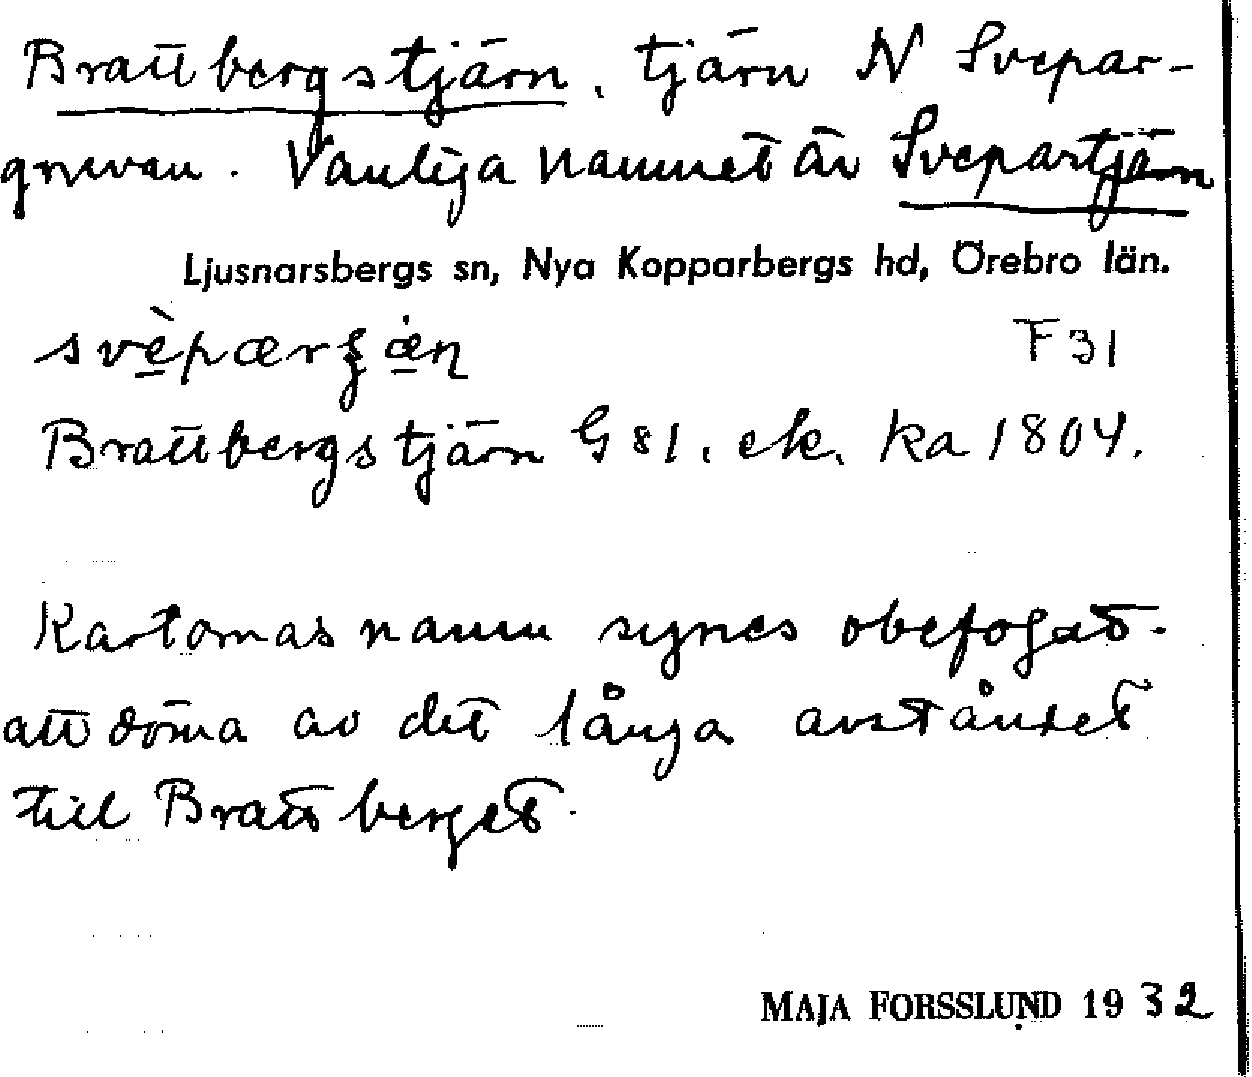 Brattbergstjärn, tjärn N Svepar-
gruvan. Vanliga namnet är Svepartjärn
Ljusnarsbergs sn, Nya Kopparbergs hd, Örebro län.
F 31
Brattbergstjärn G 81, ek. ka 1804.
Kartornas namn synes obefogat
att döma av det långa avståndet
till Brattberget.
MAJA FORSSLUND 1932